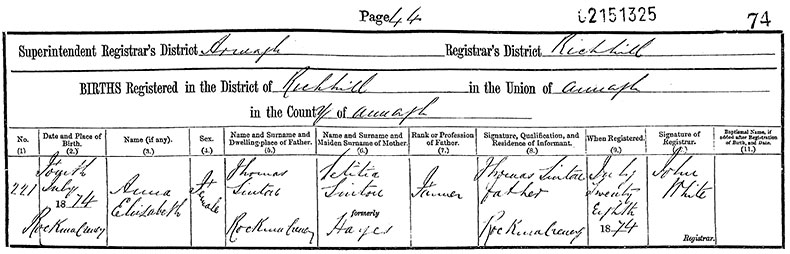 Page 44 02151325 74
Superintendent Registrar's District Armagh Registrar's District Richhill
BIRTHS Registered in the District of Richhill in the Union of Armagh
in the County of Armagh
No. (1.)
Date and Place of Birth. (2.)
Name (if any). (3.)
Sex. (4.)
Name and Surname and Dwelling-place of Father. (5.)
Name and Surname and Maiden Surname of Mother. (6.)
Rank or Profession of Father. (7.)
Signature, Qualification, and Residence of Informant. (8.)
When Registered. (9.)
Signature of Registrar. (10.)
Baptismal Name, if added after Registration of Birth, and Date. (11.)
221
Fourth
July
1874
Rockmacreeny
Anna
Elizabeth
Female
Thomas
Sinton
Rockmacreeny
Letitia
Sinton
formerly
Hayes
Thomas Sinton
father
Rockmacreeny
July
Twenty
Eighth
1874
John
White
Registrar.